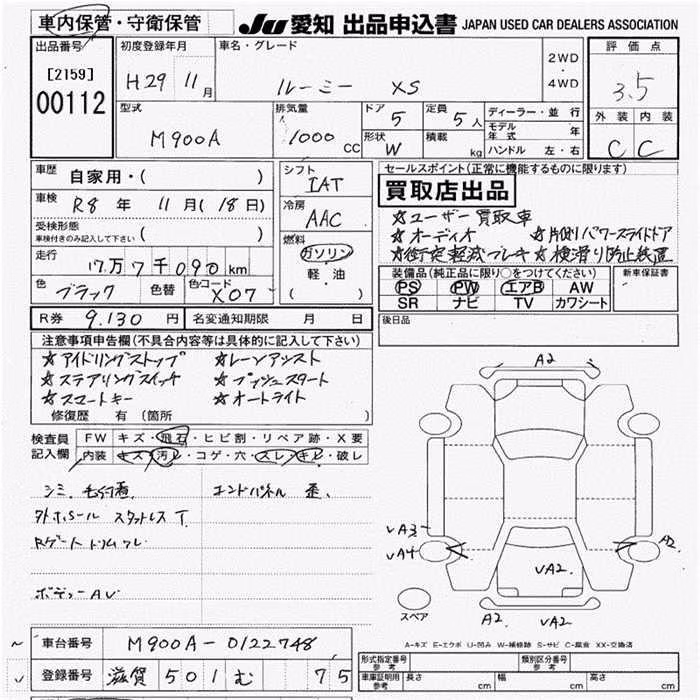 車内保管・守衛保管 JU 愛知 出品申込書 JAPAN USED CAR DEALERS ASSOCIATION
出品番号 初度登録年月 車名・グレード 2WD・4WD 評価点
[2159] 00112 H29 11月 ルーミー XS 3.5
型式 排気量 ドア 5 定員 5人 ディーラー・並行 外装 内装
M900A 1000 CC 形状 W 積載 kg モデル年式 年 C C
ハンドル 左・右
車歴 自家用・( ) シフト IAT セールスポイント(正常に機能するものに限ります)
車検 R8 年 11月(18日) 冷房 AAC 買取店出品
受検形態 車検付きのみ記入して下さい ( )
☆ユーザー買取車
☆オーディオ ☆片側パワースライドドア
☆衝突軽減ブレーキ ☆横滑り防止装置
走行 17万7千090km 燃料 ガソリン・軽油 ( )
装備品(純正品に限り○をつけてください) 新車保証書
色 ブラック 色替 色コード X07 PS PW エアB AW
SR ナビ TV カワシート
R券 9.130 円 名変通知期限 月 日 後日品
注意事項申告欄(不具合内容等は具体的に記入して下さい)
☆アイドリングストップ ☆レーンアシスト
☆ステアリングスイッチ ☆プッシュスタート
☆スマートキー ☆オートライト
修復歴 有(箇所 )
検査員記入欄 FW キズ・飛石・ヒビ割・リペア跡・X要
内装 キズ・汚レ・コゲ・穴・スレ・キレ・破レ
シミ 毛付着 エンドパネル 歪、
外ホイール スタッドレスT
Rゲートトリムワレ
ボディーAV
A2
VA3
VA4
A2
VA2
A2 VA2
スペア
A-キズ E-エクボ U-凹み W-補修跡 S-サビ C-腐食 XX-交換済
車台番号 M900A-0122748
登録番号 滋賀 501 む 75
形式指定番号 参考 類別区分番号 参考
車庫証明用 参考 長さ cm 幅 cm 高さ cm